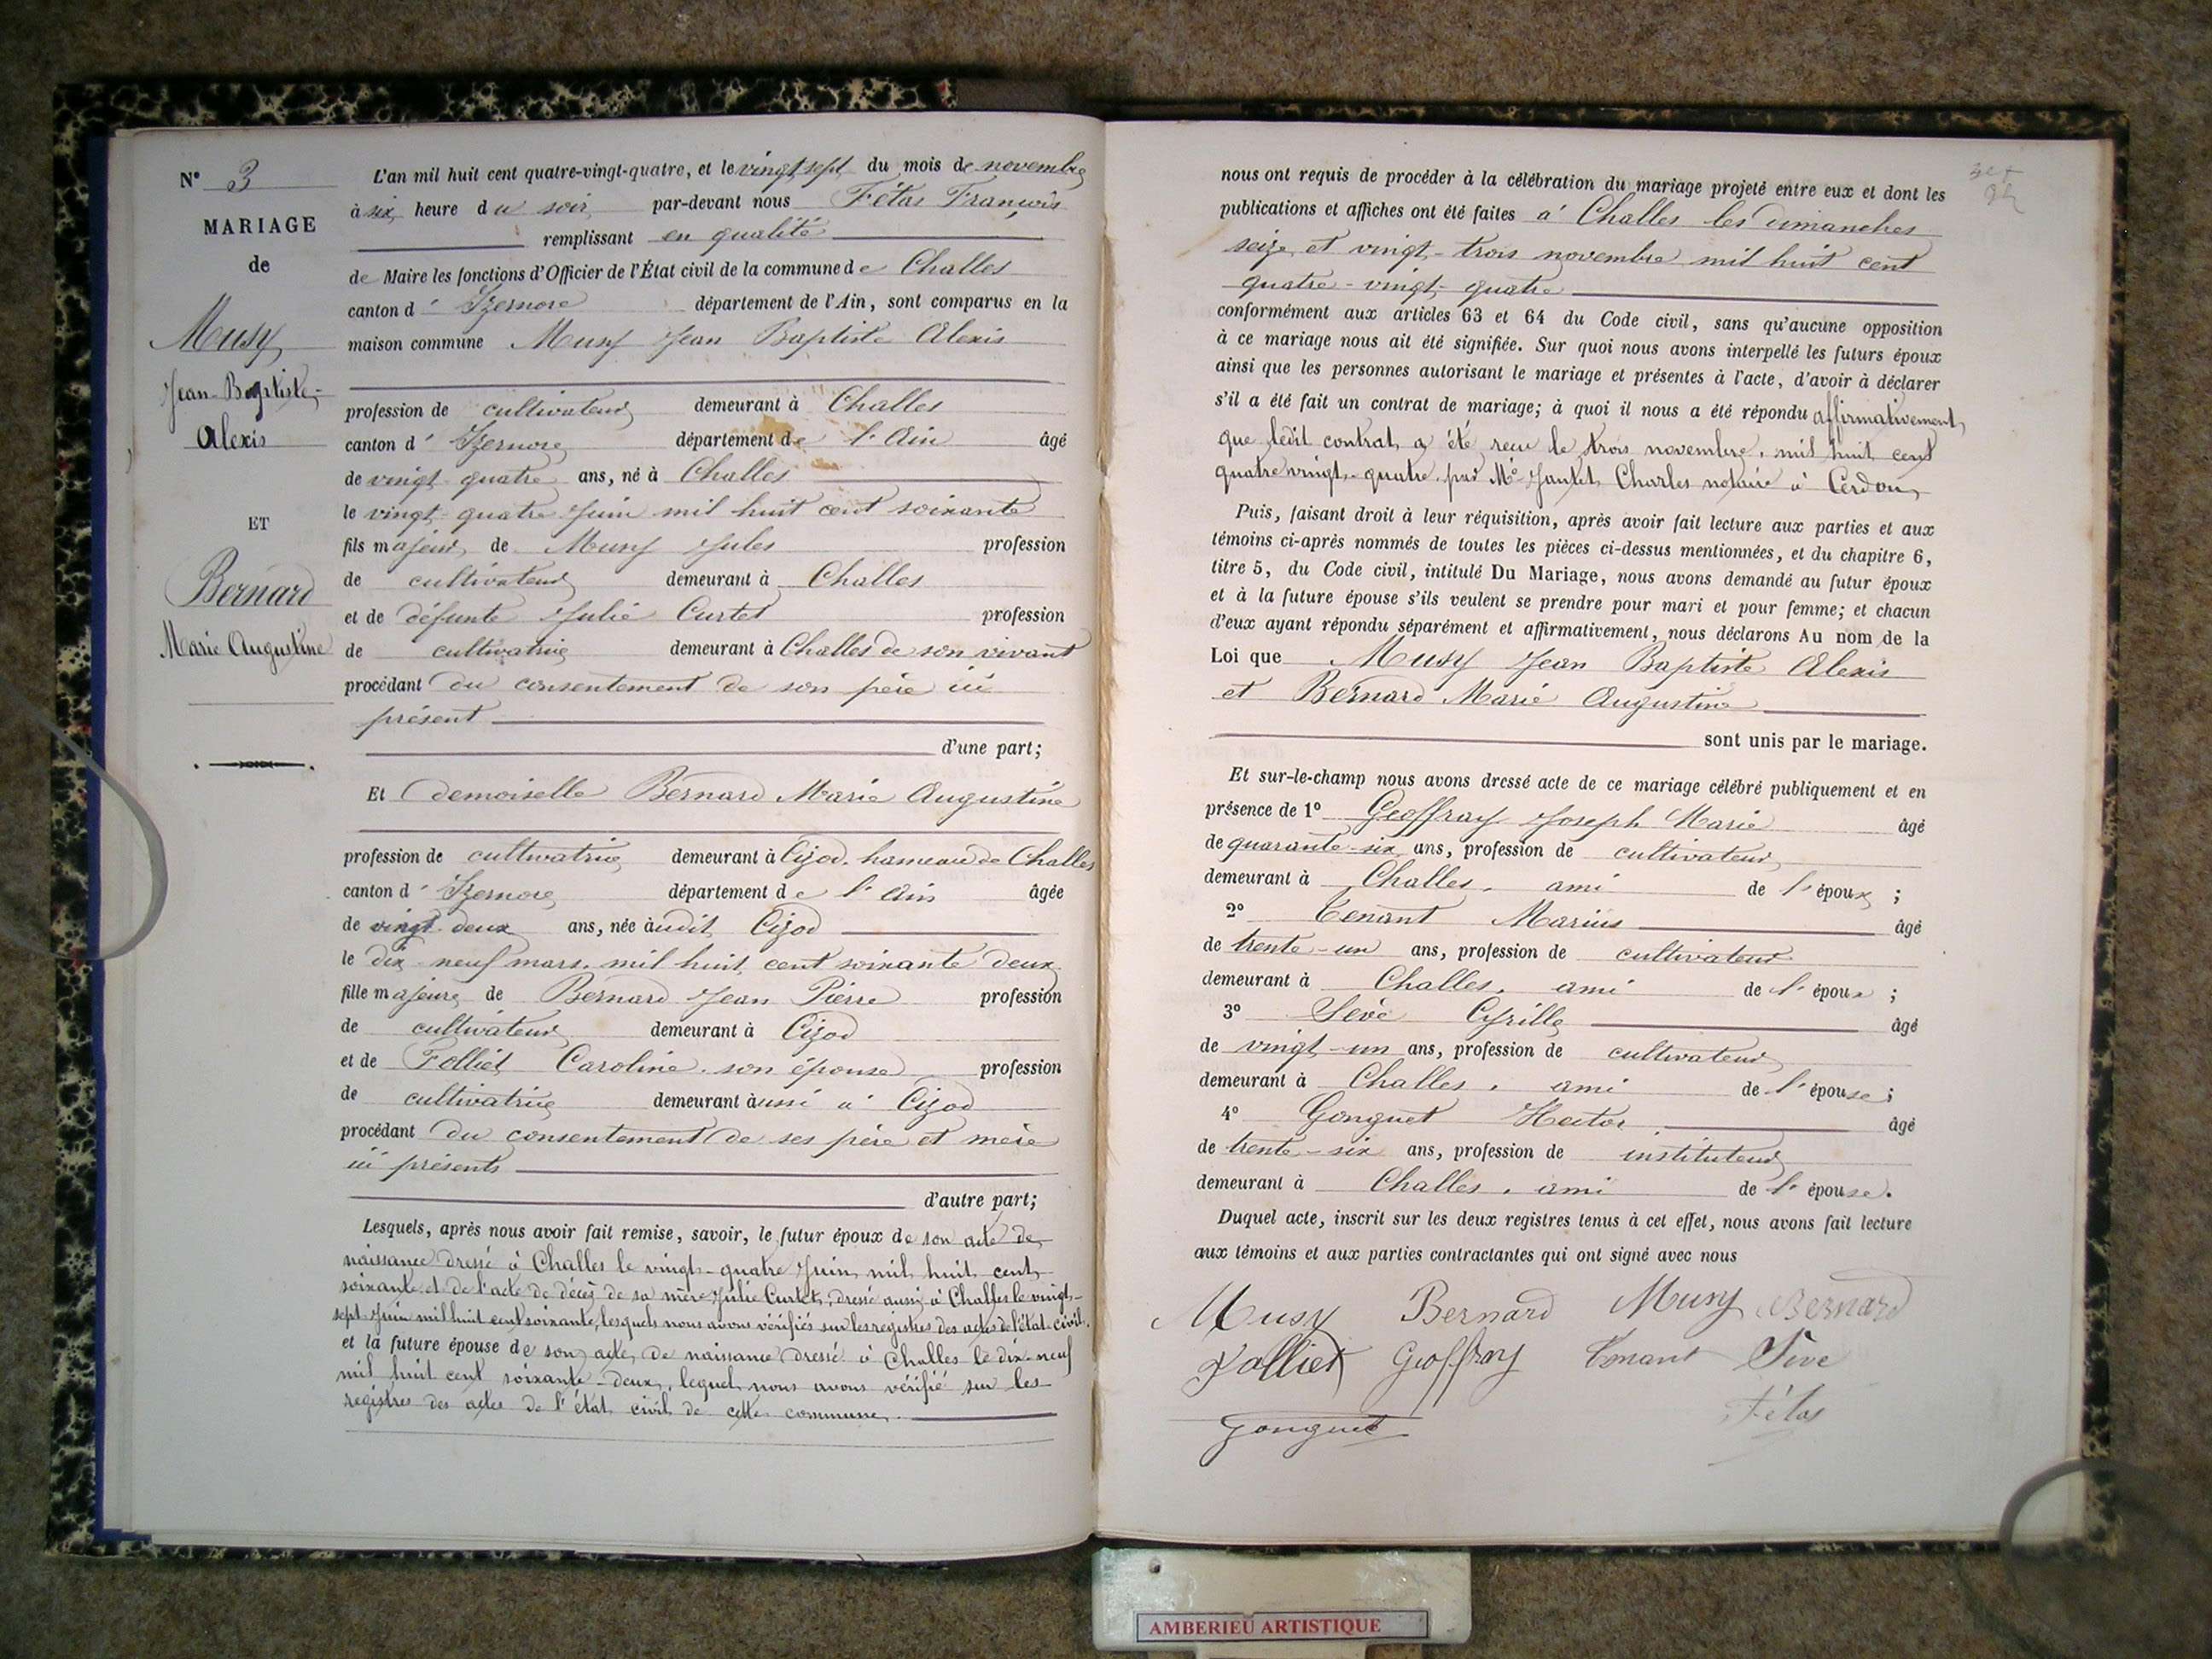 N° 3
MARIAGE
de
Musy
Jean-Baptiste-
Alexis
ET
Bernard
Marie Augustine
L'an mil huit cent quatre-vingt-quatre, et le vingt sept du mois de novembre
à six heure du soir par-devant nous Fétas François
remplissant en qualité
de Maire les fonctions d'Officier de l'État civil de la commune de Challes
canton d' Izernore département de l'Ain, sont comparus en la
maison commune Musy Jean Baptiste Alexis
profession de cultivateur demeurant à Challes
canton d' Izernore département de l'Ain âgé
de vingt-quatre ans, né à Challes
le vingt-quatre Juin mil huit cent soixante
fils majeur de Musy Jules profession
de cultivateur demeurant à Challes
et de défunte Julie Curtet profession
de cultivatrice demeurant à Challes de son vivant
procédant du consentement de son père ici
présent
d'une part;
Et Demoiselle Bernard Marie Augustine
profession de cultivatrice demeurant à Cizod, hameau de Challes
canton d' Izernore département de l'Ain âgée
de vingt-deux ans, née audit Cizod
le dix-neuf mars, mil huit cent soixante deux
fille majeure de Bernard Jean Pierre profession
de cultivateur demeurant à Cizod
et de Folliet Caroline, son épouse profession
de cultivatrice demeurant aussi à Cizod
procédant du consentement de ses père et mère
ici présents
d'autre part;
Lesquels, après nous avoir fait remise, savoir, le futur époux de son acte de
naissance dressé à Challes le vingt-quatre Juin mil huit cent
soixante et de l'acte de décès de sa mère Julie Curtet, dressé aussi à Challes le vingt-
sept Juin mil huit cent soixante, lesquels nous avons vérifiés sur les registres des actes de l'état-civil.
et la future épouse de son acte de naissance dressé à Challes le dix-neuf
mil huit cent soixante-deux, lequel nous avons vérifié sur les
registres des actes de l'état civil de cette commune.
nous ont requis de procéder à la célébration du mariage projeté entre eux et dont les
publications et affiches ont été faites à Challes les dimanches
seize et vingt-trois novembre mil huit cent
quatre-vingt-quatre
conformément aux articles 63 et 64 du Code civil, sans qu'aucune opposition
à ce mariage nous ait été signifiée. Sur quoi nous avons interpellé les futurs époux
ainsi que les personnes autorisant le mariage et présentes à l'acte, d'avoir à déclarer
s'il a été fait un contrat de mariage; à quoi il nous a été répondu affirmativement
que ledit contrat a été reçu le trois novembre, mil huit cent
quatre vingt-quatre par Me Jantet Charles notaire à Cerdon
Puis, faisant droit à leur réquisition, après avoir fait lecture aux parties et aux
témoins ci-après nommés de toutes les pièces ci-dessus mentionnées, et du chapitre 6,
titre 5, du Code civil, intitulé Du Mariage, nous avons demandé au futur époux
et à la future épouse s'ils veulent se prendre pour mari et pour femme; et chacun
d'eux ayant répondu séparément et affirmativement, nous déclarons Au nom de la
Loi que Musy Jean Baptiste Alexis
et Bernard Marie Augustine
sont unis par le mariage.
Et sur-le-champ nous avons dressé acte de ce mariage célébré publiquement et en
présence de 1° Geoffray Joseph Marie âgé
de quarante-six ans, profession de cultivateur
demeurant à Challes, ami de l'époux ;
2° Tenant Marius âgé
de trente-un ans, profession de cultivateur
demeurant à Challes, ami de l'époux ;
3° Sève Cyrille âgé
de vingt-un ans, profession de cultivateur
demeurant à Challes, ami de l'épouse ;
4° Gonguet Hector âgé
de trente-six ans, profession de instituteur
demeurant à Challes, ami de l'épouse.
Duquel acte, inscrit sur les deux registres tenus à cet effet, nous avons fait lecture
aux témoins et aux parties contractantes qui ont signé avec nous
Musy Bernard Musy Bernard
Folliet Geoffray Tenant Sève
Fétas
Gonguet
AMBERIEU ARTISTIQUE